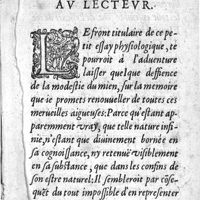 AV LECTEVR.
LE front titulaire de ce pe-
tit essay physiologique, te
pourroit à l'aduenture
laisser quelque deffience
de la modestie du mien, sur la memoire
que ie promets renouueller de toutes ces
merueilles aigueuses: Parce qu'estant ap-
paremment vray, que telle nature infi-
nie, n'estant que diuinement bornée en
sa cognoissance, ny retenuë visiblement
en sa substance, que dans les confins de
son estre naturel: Il sembleroit par cõse-
quẽt du tout impossible d'en representer